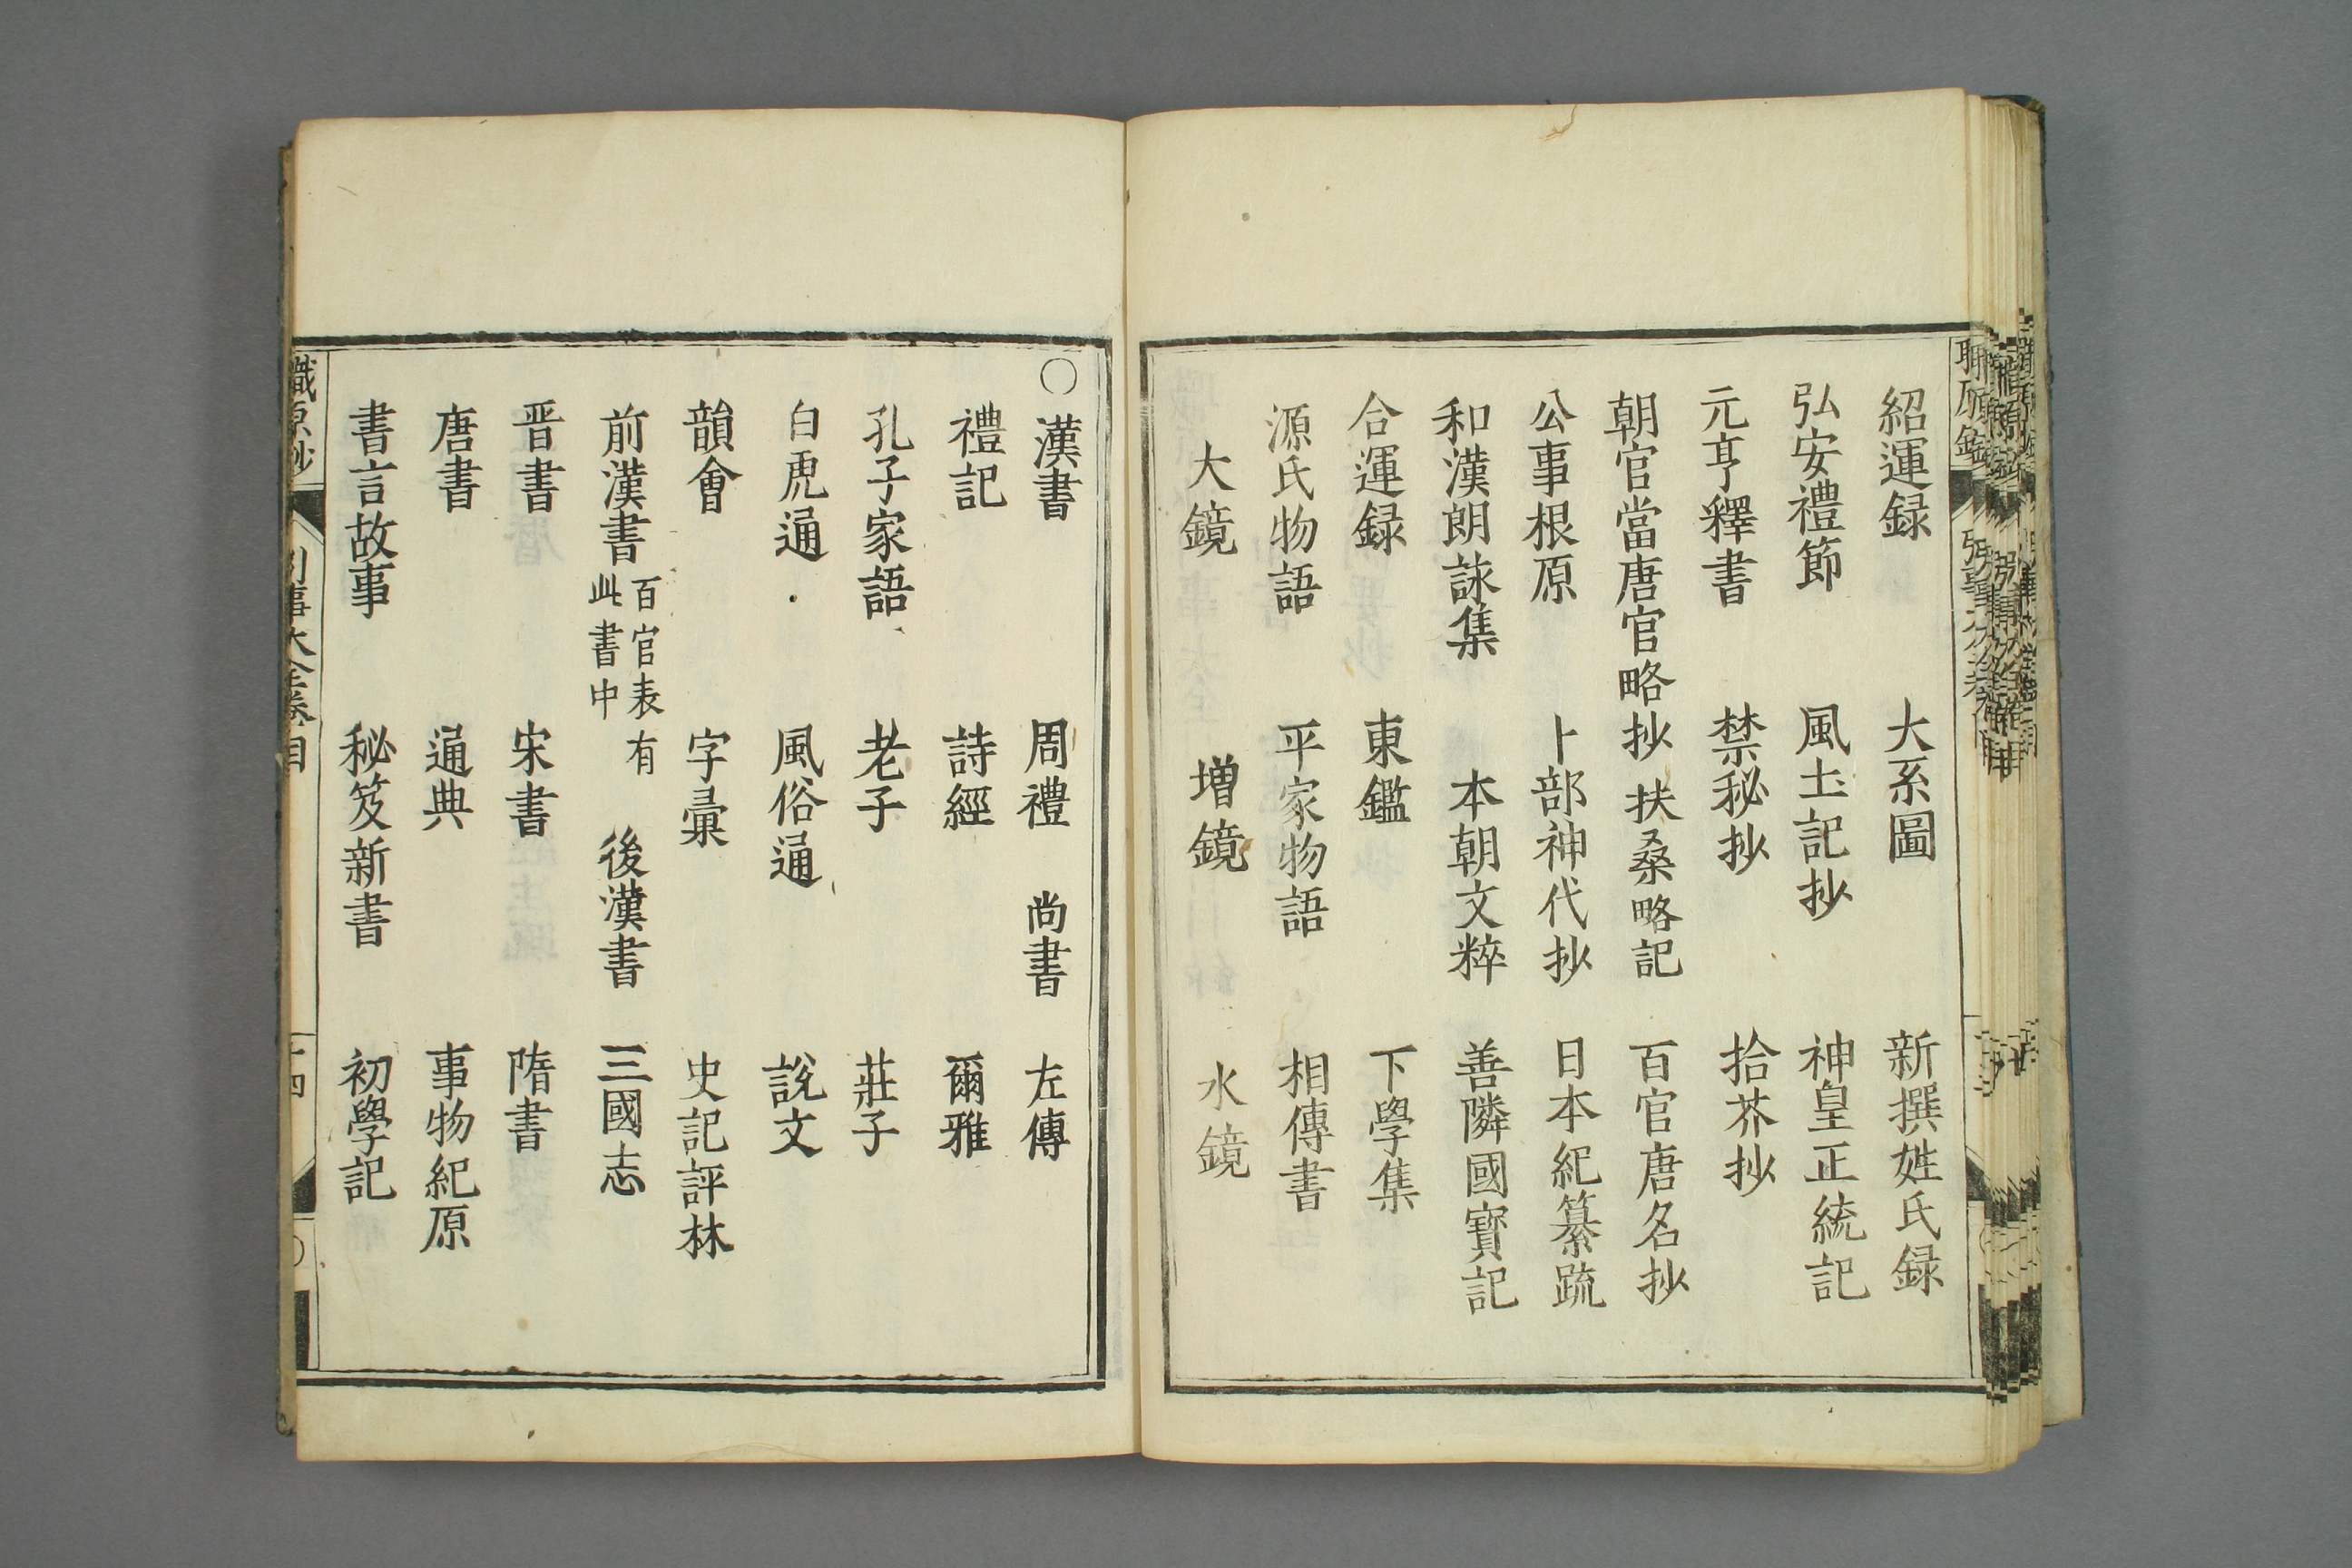 紹運録 大系圖 新撰姓氏録
弘安禮節 風土記抄 神皇正統記
元亨釋書 禁秘抄 拾芥抄
朝官當唐官略抄 扶桑略記 百官唐名抄
公事根原 卜部神代抄 日本紀纂疏
和漢朗詠集 本朝文粹 善隣國寳記
合運録 東鑑 下學集
源氏物語 平家物語 相傳書
大鏡 増鏡 水鏡
〇漢書 周禮 尚書 左傳
禮記 詩經 爾雅
孔子家語 老子 莊子
白虎通 風俗通 説文
韻會 字彙 史記評林
前漢書 百官表有此書中 後漢書 三國志
晋書 宋書 隋書
唐書 通典 事物紀原
書言故事 秘笈新書 初學記
職原抄 引事大全卷 目 十四